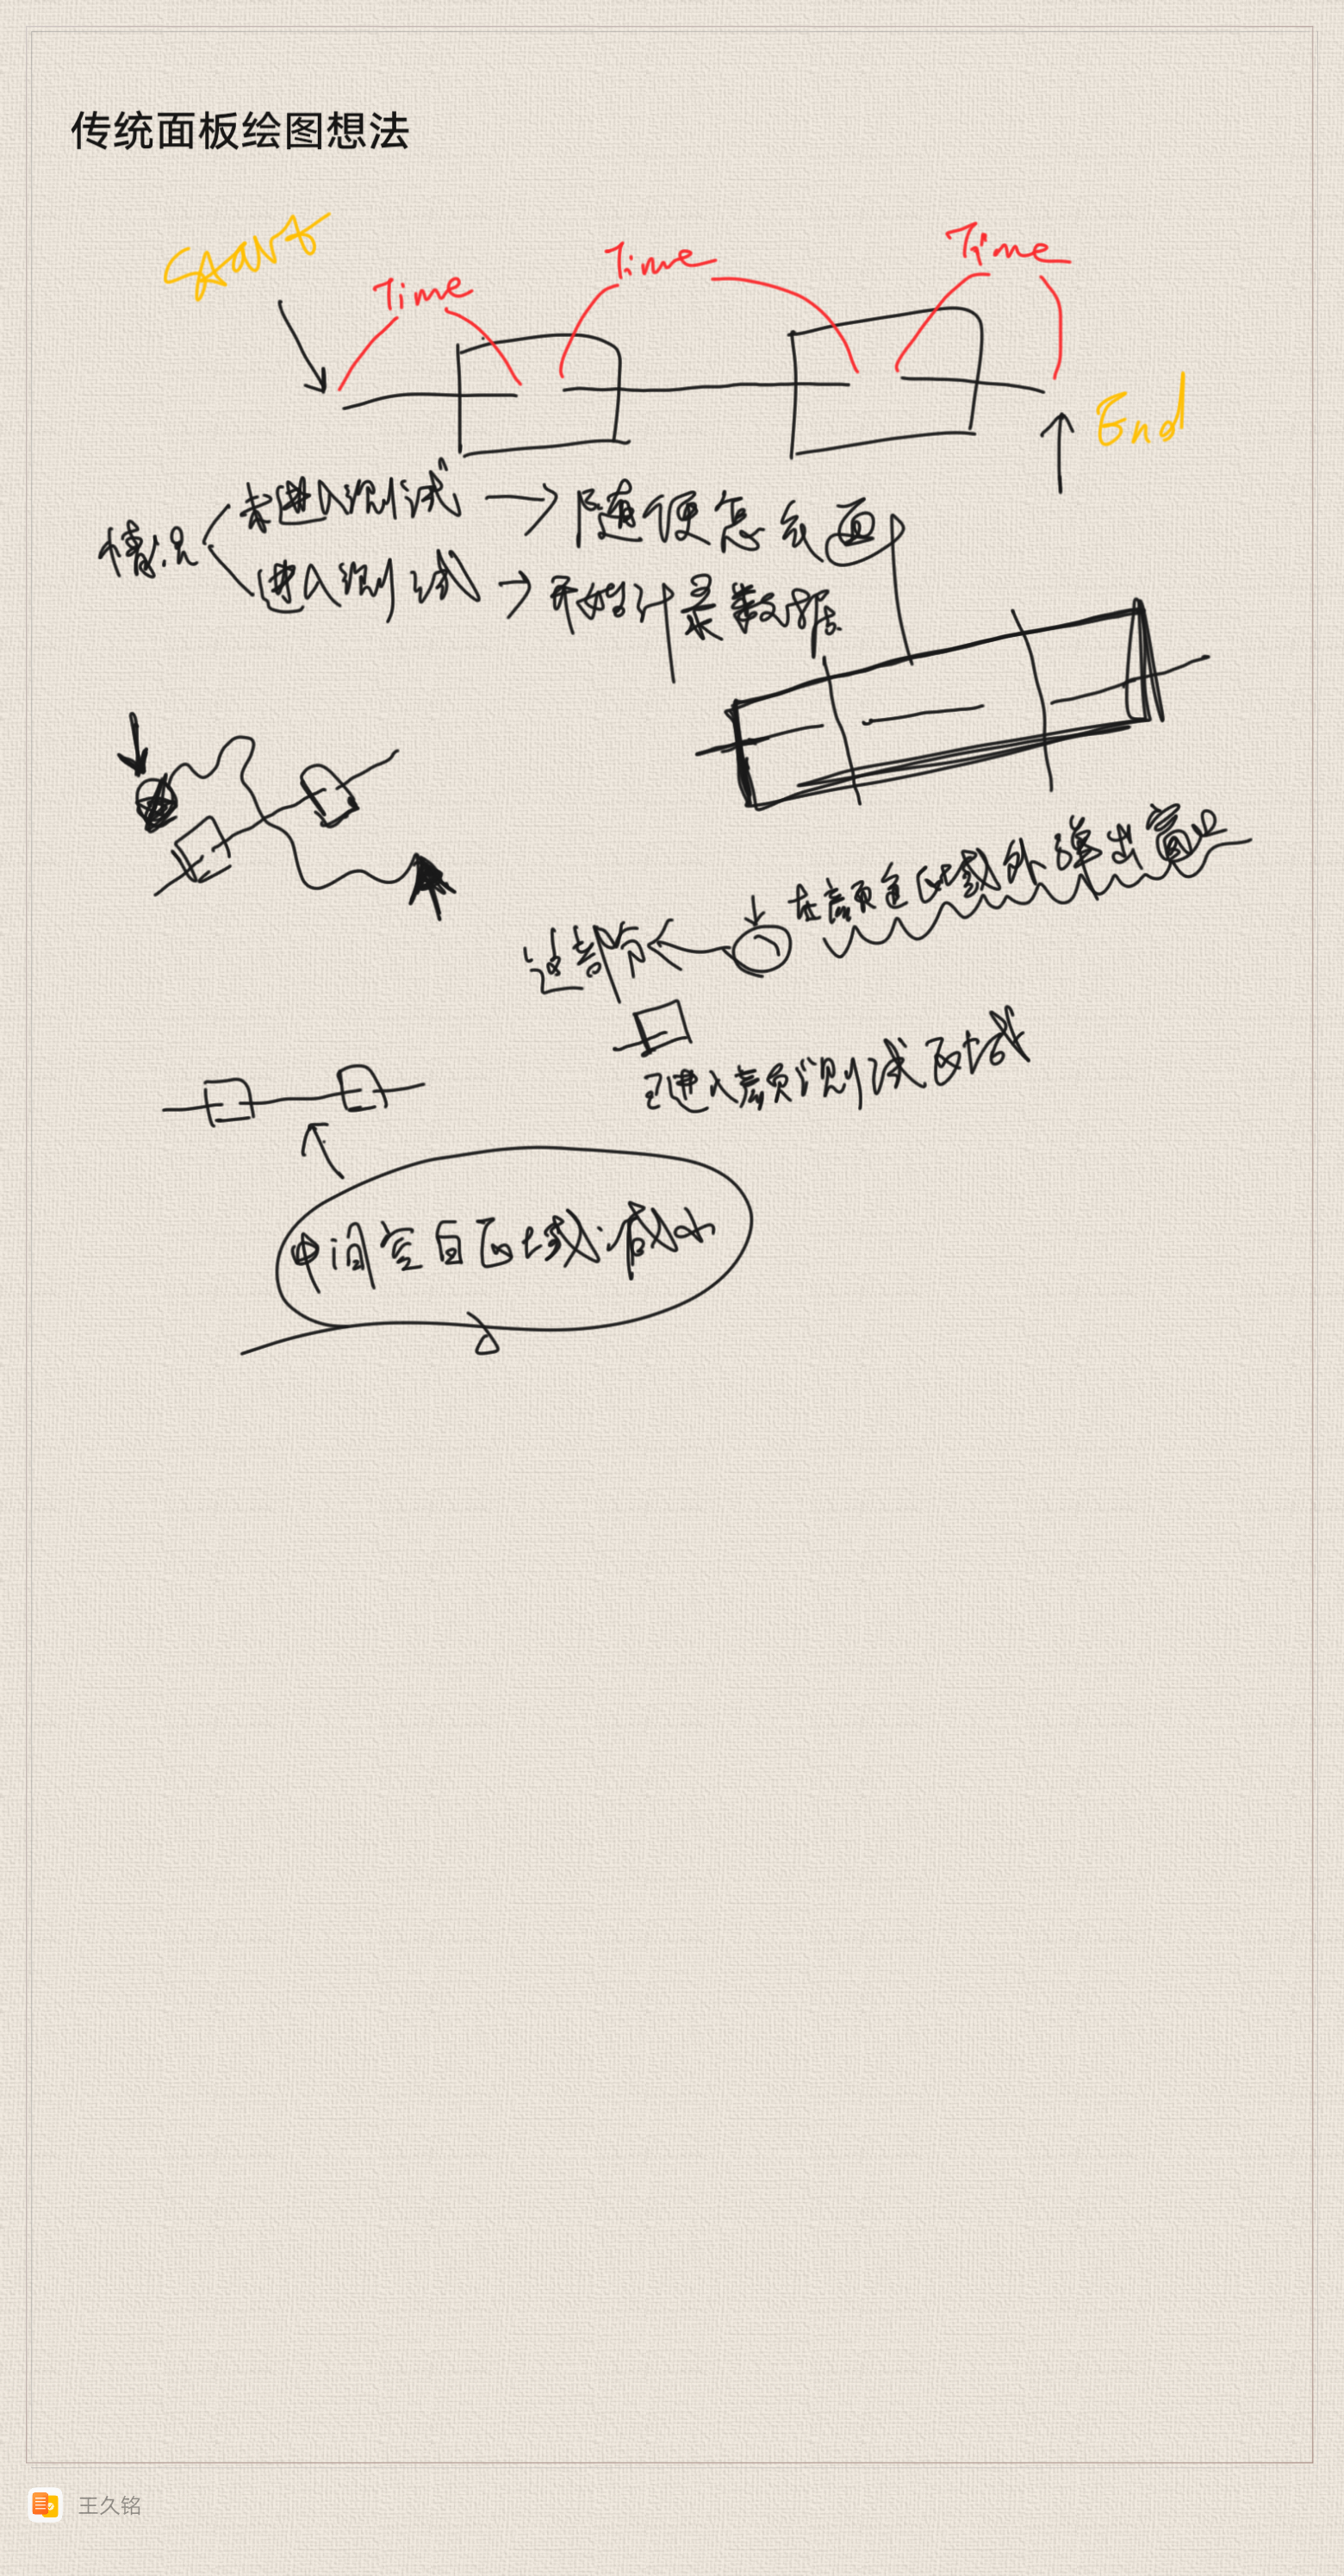 传统面板绘图想法
Start
Time
Time
Time
End
情况
未进入测试 → 随便怎么画
进入测试 → 开始计录数据
在颜色区域外弹出窗口
这部分
进入颜测试区域
中间空白区域减小
王久铭